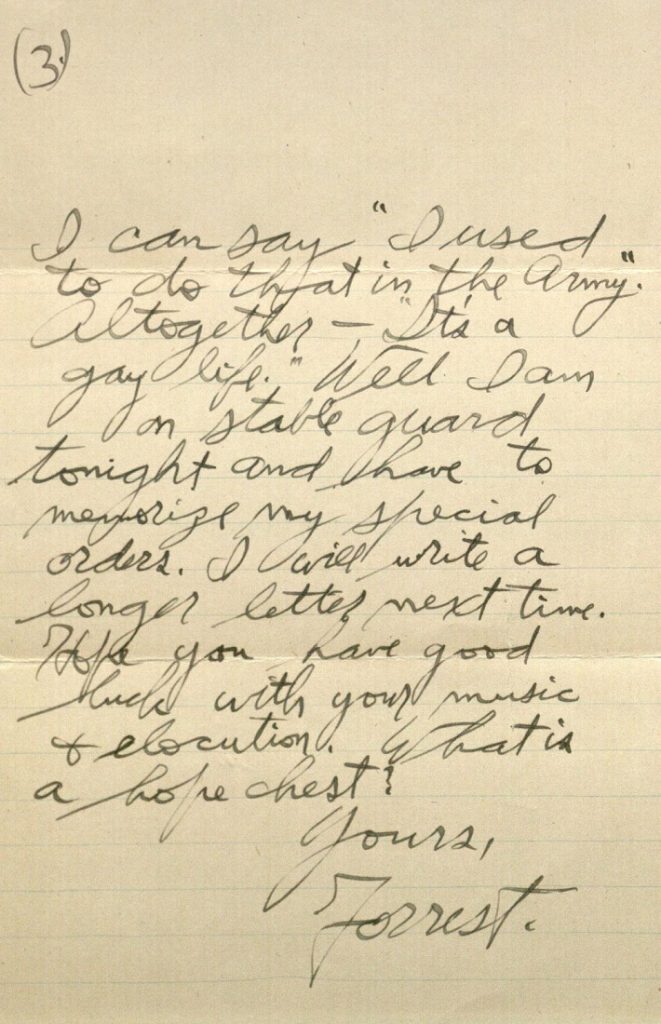 (3.)
I can say "I used
to do that in the Army".
Altogether – "It's a
gay life." Well I am
on stable guard
tonight and have to
memorize my special
orders. I will write a
longer letter next time.
Hope you have good
luck with your music
& elocution. What is
a hope chest?
Yours,
Forrest.